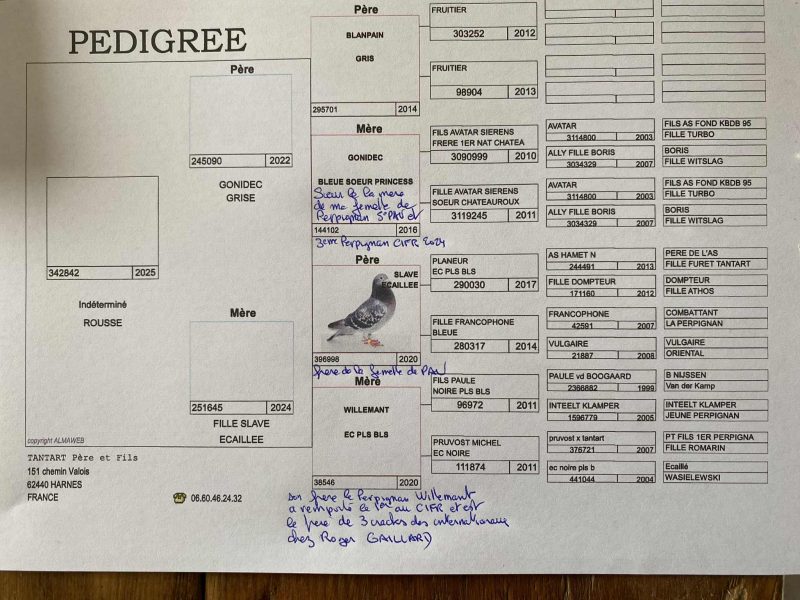 PEDIGREE
342842 2025
Indéterminé
ROUSSE
Père
245090 2022
GONIDEC
GRISE
Mère
251645 2024
FILLE SLAVE
ECAILLEE
copyright ALMAWEB
TANTART Père et Fils
151 chemin Valois
62440 HARNES
FRANCE
06.60.46.24.32
Père
BLANPAIN
GRIS
295701 2014
Mère
GONIDEC
BLEUE SOEUR PRINCESS
Sœur de la mère
de ma femelle de
Perpignan 5e PAU et
144102 2016
3eme Perpignan CIFR 2024
Père
SLAVE
ECAILLEE
396998 2020
frère de la femelle de PAU
Mère
WILLEMANT
EC PLS BLS
38546 2020
son frère le Perpignan Willemant
a remporté le 1er au CIFR et est
le frère de 3 cracks des internationaux
chez Roger GAILLARD
FRUITIER
303252 2012
FRUITIER
98904 2013
FILS AVATAR SIERENS
FRERE 1ER NAT CHATEA
3090999 2010
FILLE AVATAR SIERENS
SOEUR CHATEAUROUX
3119245 2011
PLANEUR
EC PLS BLS
290030 2017
FILLE FRANCOPHONE
BLEUE
280317 2014
FILS PAULE
NOIRE PLS BLS
96972 2011
PRUVOST MICHEL
EC NOIRE
111874 2011
AVATAR
3114800 2003
ALLY FILLE BORIS
3034329 2007
AVATAR
3114800 2003
ALLY FILLE BORIS
3034329 2007
AS HAMET N
244491 2013
FILLE DOMPTEUR
171160 2012
FRANCOPHONE
42591 2007
VULGAIRE
21887 2008
PAULE vd BOOGAARD
2366882 1999
INTEELT KLAMPER
1596779 2005
pruvost x tantart
376721 2007
ec noire pls b
441044 2004
FILS AS FOND KBDB 95
FILLE TURBO
BORIS
FILLE WITSLAG
FILS AS FOND KBDB 95
FILLE TURBO
BORIS
FILLE WITSLAG
PERE DE L'AS
FILLE FURET TANTART
DOMPTEUR
FILLE ATHOS
COMBATTANT
LA PERPIGNAN
VULGAIRE
ORIENTAL
B NIJSSEN
Van der Kamp
INTEELT KLAMPER
JEUNE PERPIGNAN
PT FILS 1ER PERPIGNA
FILLE ROMARIN
Ecaillé
WASIELEWSKI